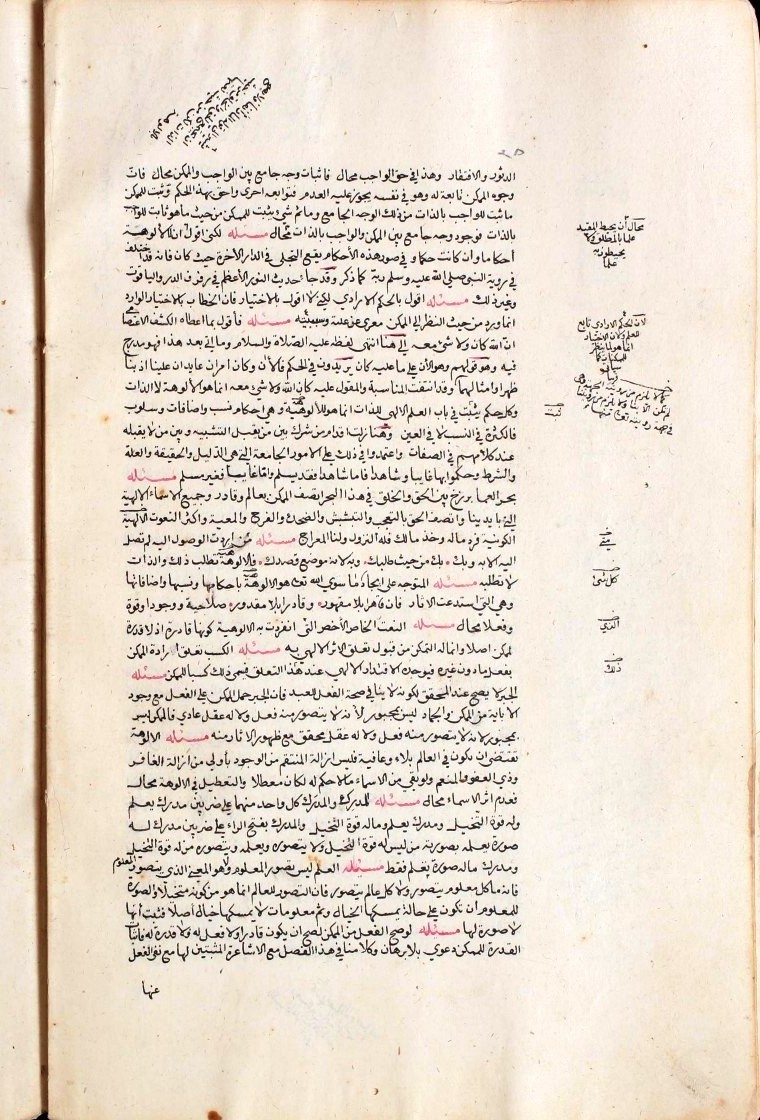 الدثور والافتقار وهذا في حق الواجب محال فاثبات وجه جامع بين الواجب والممكن محال فان
وجوه الممكن تابعة له وهو في نفسه يجوز عليه العدم فتوابعه احرى واحق بهذا الحكم وثبت للممكن
ما ثبت للواجب بالذات من ذلك الوجه الجامع وما ثم شيء يثبت للممكن من حيث ما هو ثابت للواجب
بالذات فوجود وجه جامع بين الممكن والواجب بالذات محال مسئله لكني اقول ان للالوهة
احكاما وان كانت حكما وفي صور هذه الاحكام يقع التجلي في الدار الاخرة حيث كان فانه قد اختلف
في روية النبي صلى الله عليه وسلم ربه كما ذكر وقد جا حديث النور الاعظم في رفرف الدر والياقوت
وغير ذلك مسئله اقول بالحكم الارادي لكني لا اقول بالاختيار فان الخطاب بالاختيار الوارد
انما ورد من حيث النظر الى الممكن معرى عن علته وسببيته مسئله فأقول بما اعطاه الكشف الاعتصامي
ان الله كان ولا شيء معه الى هنا انتهى لفظه عليه الصلاة والسلام وما اتى بعد هذا فهو مدرج
فيه وهو قولهم وهو الآن على ما عليه كان يريدون في الحكم فالآن وكان امران عايدان علينا اذ بنا
ظهرا وامثالهما وقد انتفت المناسبة والمقول عليه كان الله ولا شيء معه انما هو الالوهة لا الذات
وكل حكم يثبت في باب العلم الالهي للذات انما هو للالوهية وهي احكام نسب واضافات وسلوب
فالكثرة في النسب لا في العين وهنا زلت اقدام من شرك بين من يقبل التشبيه وبين من لا يقبله
عند كلامهم في الصفات واعتمدوا في ذلك على الامور الجامعة التي هي الدليل والحقيقة والعلة
والشرط وحكموا بها غايبا وشاهدا فاما شاهدا فقد يسلم واما غايبا فغير مسلم مسئله
بحر العما برزخ بين الحق والخلق في هذا البحر اتصف الممكن بعالم وقادر وجميع الاسماء الالهية
التي بايدينا واتصف الحق بالتعجب والتبشبش والضحك والفرح والمعية واكثر النعوت الالهية
الكونية فرد ماله وخذ مالك فله النزول ولنا المعراج مسئله من اردت الوصول اليه لم تصل
اليه الا به وبك بك من حيث طلبك وبه لانه موضع قصدك فالالوهة تطلب ذلك والذات
لا تطلبه مسئله المتوجه على ايجاد ما سوى الله تعالى هو الالوهة باحكامها ونسبها واضافاتها
وهي التي استدعت الاثار فان قاهرا بلا مقهور وقادرا بلا مقدور صلاحية ووجودا وقوة
وفعلا محال مسئله النعت الخاص الاخص التي انفردت به الالوهية كونها قادرة اذ لا قدرة
لممكن اصلا وانما له التمكن من قبول تعلق الاثر الالهي به مسئله الكسب تعلق ارادة الممكن
بفعل ما دون غيره فيوجده الاقتدار الالهي عند هذا التعلق فسمي ذلك كسبا للممكن مسئله
الجبر لا يصح عند المحقق لكونه لا ينافي صحة الفعل للعبد فان الجبر حمل الممكن على الفعل مع وجود
الاباية من الممكن والجماد ليس بمجبور لأنه لا يتصور منه فعل ولا له عقل عادي فالممكن ليس
بمجبور لانه لا يتصور منه فعل ولا له عقل محقق مع ظهور الاثار منه مسئله الالوهة
تقتضي ان يكون في العالم بلاء وعافية فليس ازالة المنتقم من الوجود بأولى من ازالة الغافر
وذي العفو والمنعم ولو بقي من الاسماء ما لا حكم له لكان معطلا والتعطيل في الالوهة محال
فعدم اثر الاسماء محال مسئله المدرك والمدرك كل واحد منهما على ضربين مدرك يعلم
وله قوة التخيل ومدرك يعلم وماله قوة التخيل والمدرك بفتح الراء على ضربين مدرك له
صورة يعلمه بصورته من ليس له قوة التخيل ولا يتصوره ويعلمه ويتصوره من له قوة التخيل
ومدرك ماله صورة يعلم فقط مسئله العلم ليس تصور المعلوم ولا هو المعنى الذي يتصور المعلوم
فانه ما كل معلوم يتصور ولا كل عالم يتصور فان التصور للعالم انما هو من كونه متخيلا والصورة
للمعلوم ان تكون على حالة يمسكها الخيال وثم معلومات لا يمسكها خيال اصلا فثبت أنها
لا صورة لها مسئله لو صح الفعل من الممكن لصح ان يكون قادرا ولا فعل له ولا قدرة له فاثبات
القدرة للممكن دعوى بلا برهان وكلامنا في هذا الفصل مع الاشاعرة المثبتين لها مع نفي الفعل
عنها
محال أن يحيط المقيد
علما بالمطلق ولا
يحيطون به
علما
لان الحكم الارادي تابع
للعلم
كل شيء
الذي
ذلك